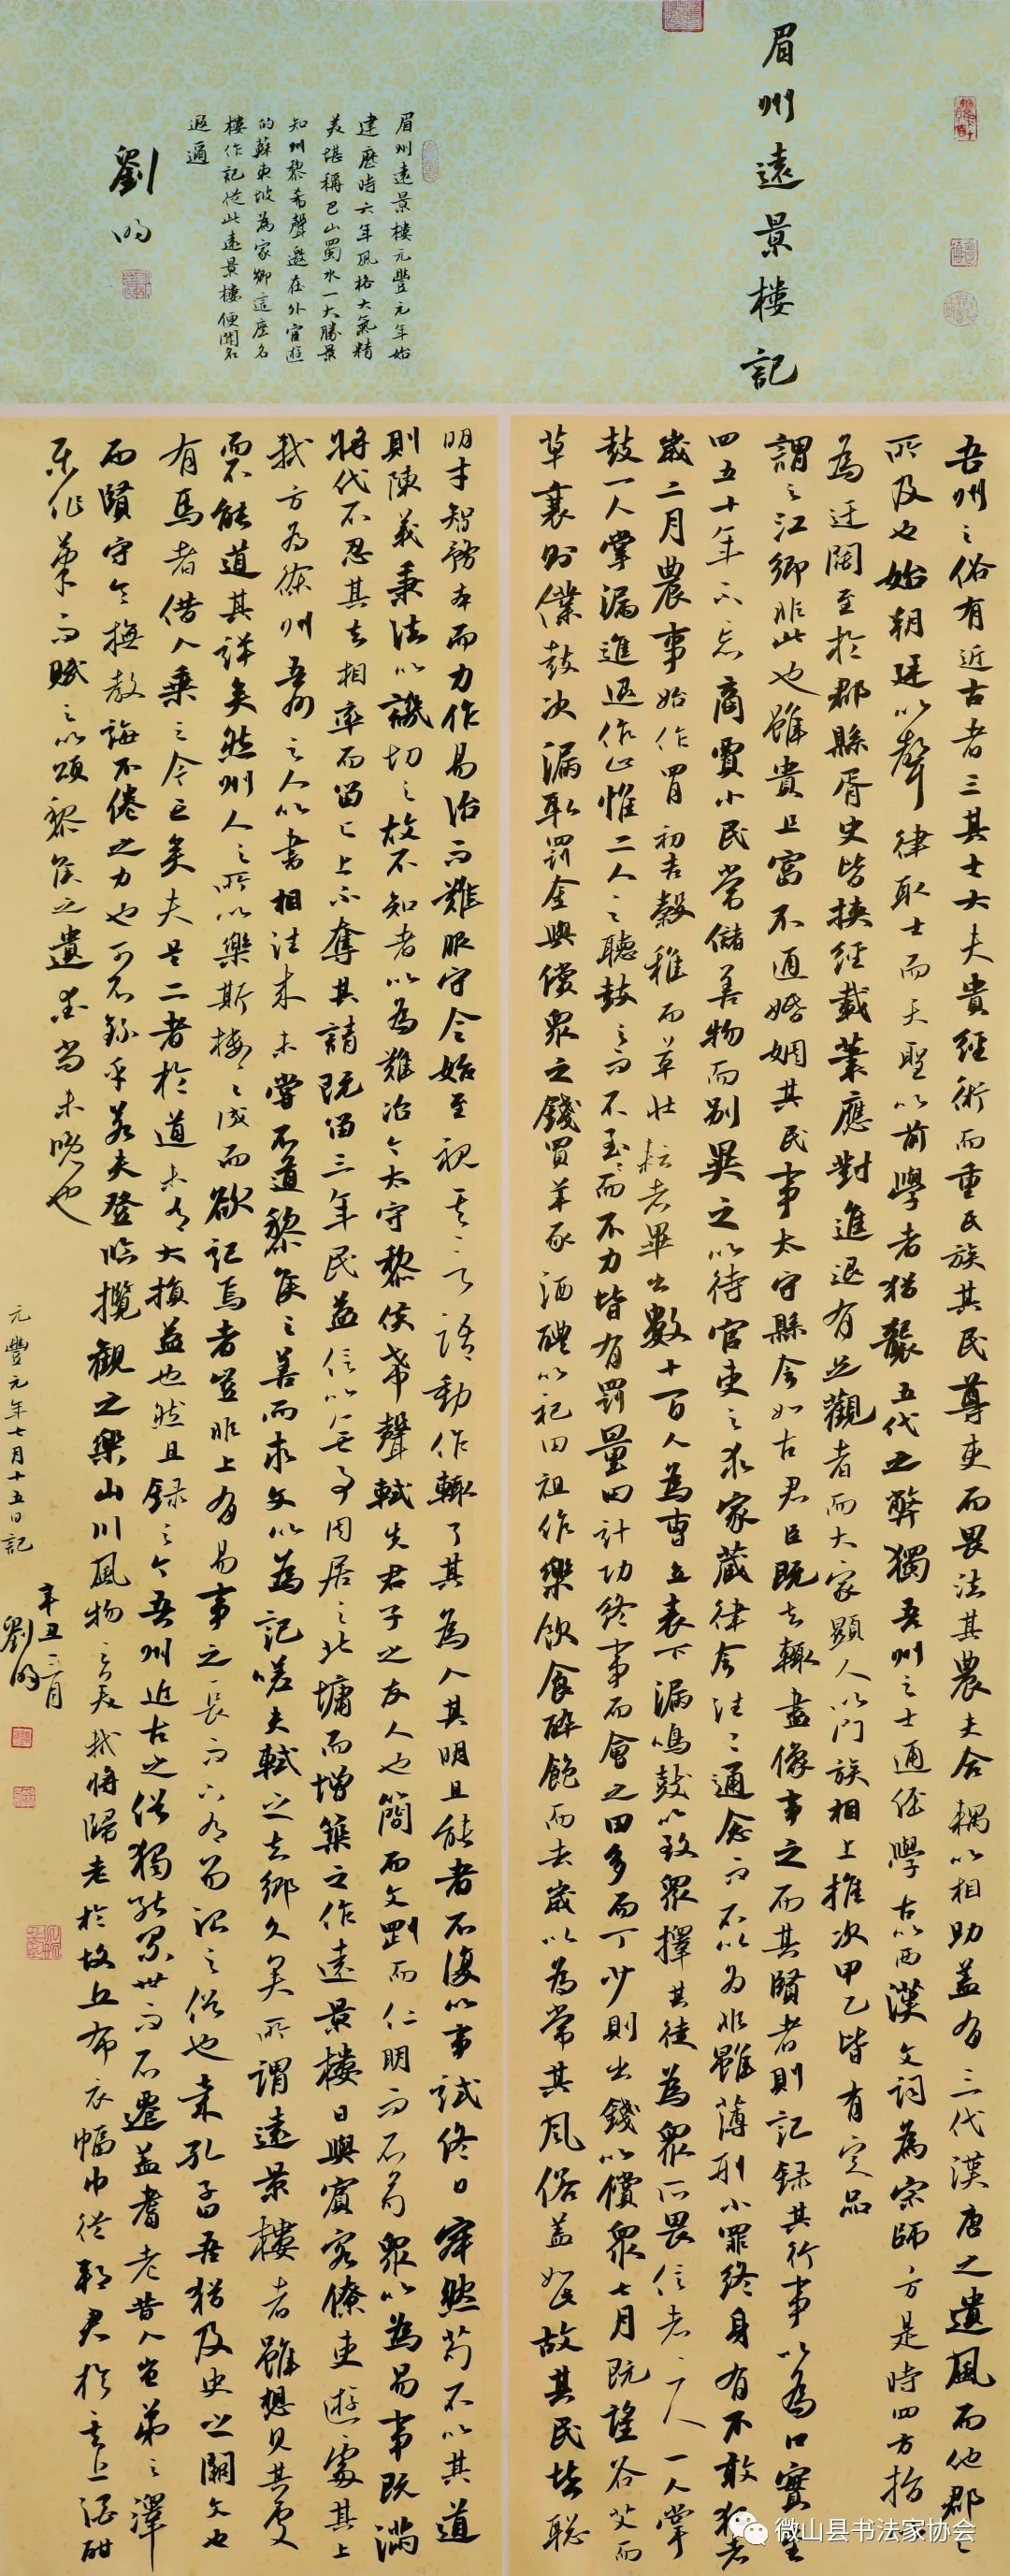 眉州遠景樓記
眉州遠景樓元豐元年始
建歷時六年風格大氣精
美堪稱巴山蜀水一大勝景
知州黎希聲邀在外宦遊
的蘇東坡為家鄉這座名
樓作記從此遠景樓便聞名
遐邇
劉明
吾州之俗有近古者三其士大夫貴經術而重氏族其民尊吏而畏法其農夫合耦以相助蓋有三代漢唐之遺風而他郡之
所及也始朝廷以聲律取士而天聖以前學者猶襲五代之弊獨吾州之士通經學古以西漢文詞為宗師方是時四方指
為迂闊至於郡縣胥史皆挾經載筆應對進退有足觀者而大家顯人以門族相上推次甲乙皆有定品
謂之江鄉非此也雖貴且富不通婚姻其民事太守縣令如古君臣既去輒畫像事之而其賢者則記錄其行事以為口實至
四五十年不忘商賈小民常儲善物而別異之以待官吏之求家藏律令往往通念而不以為非雖薄刑小罪終身有不敢犯者
歲二月農事始作四月初吉穀稚而草壯耘者畢出數十百人為曹立表下漏鳴鼓以致眾擇其徒為眾所畏信者二人一人掌
鼓一人掌漏進退作止惟二人之聽鼓之而不至至而不力皆有罰量田計功終事而會之田多而丁少則出錢以償眾七月既望谷艾而
草衰則僕鼓決漏取罰金與償眾之錢買羊豕酒醴以祀田祖作樂飲食醉飽而去歲以為常其風俗蓋如此故其民皆聰
明才智務本而力作易治而難服守令始至視其言語動作輒了其為人其明且能者不復以事試終日寂然苟不以其道
則陳義秉法以譏切之故不知者以為難治今太守黎侯希聲軾先君子之友人也簡而文剛而仁明而不苟眾以為易事既滿
將代不忍其去相率而留之上不奪其請既留三年民益信以無事因居之北墉而增築之作遠景樓日與賓客僚吏遊處其上
軾方為徐州吾州之人以書相往來未嘗不道黎侯之善而求文以為記嗟夫軾之去鄉久矣所謂遠景樓者雖想見其處
而不能道其詳矣然州人之所以樂斯樓之成而欲記焉者豈非上有易事之長而下有易治之俗也哉孔子曰吾猶及史之闕文也
有馬者借人乘之今亡矣夫是二者於道未有大損益也然且錄之今吾州近古之俗獨能累世而不遷蓋耆老昔人豈弟之澤
而賢守令撫教誨不倦之力也可不錄乎若夫登臨攬觀之樂山川風物之美軾將歸老於故丘布衣幅巾從邦君於其上酒酣
樂作援筆而賦之以頌黎侯之遺愛尚未晚也
元豐元年七月十五日記
辛丑二月
劉明
微山县书法家协会